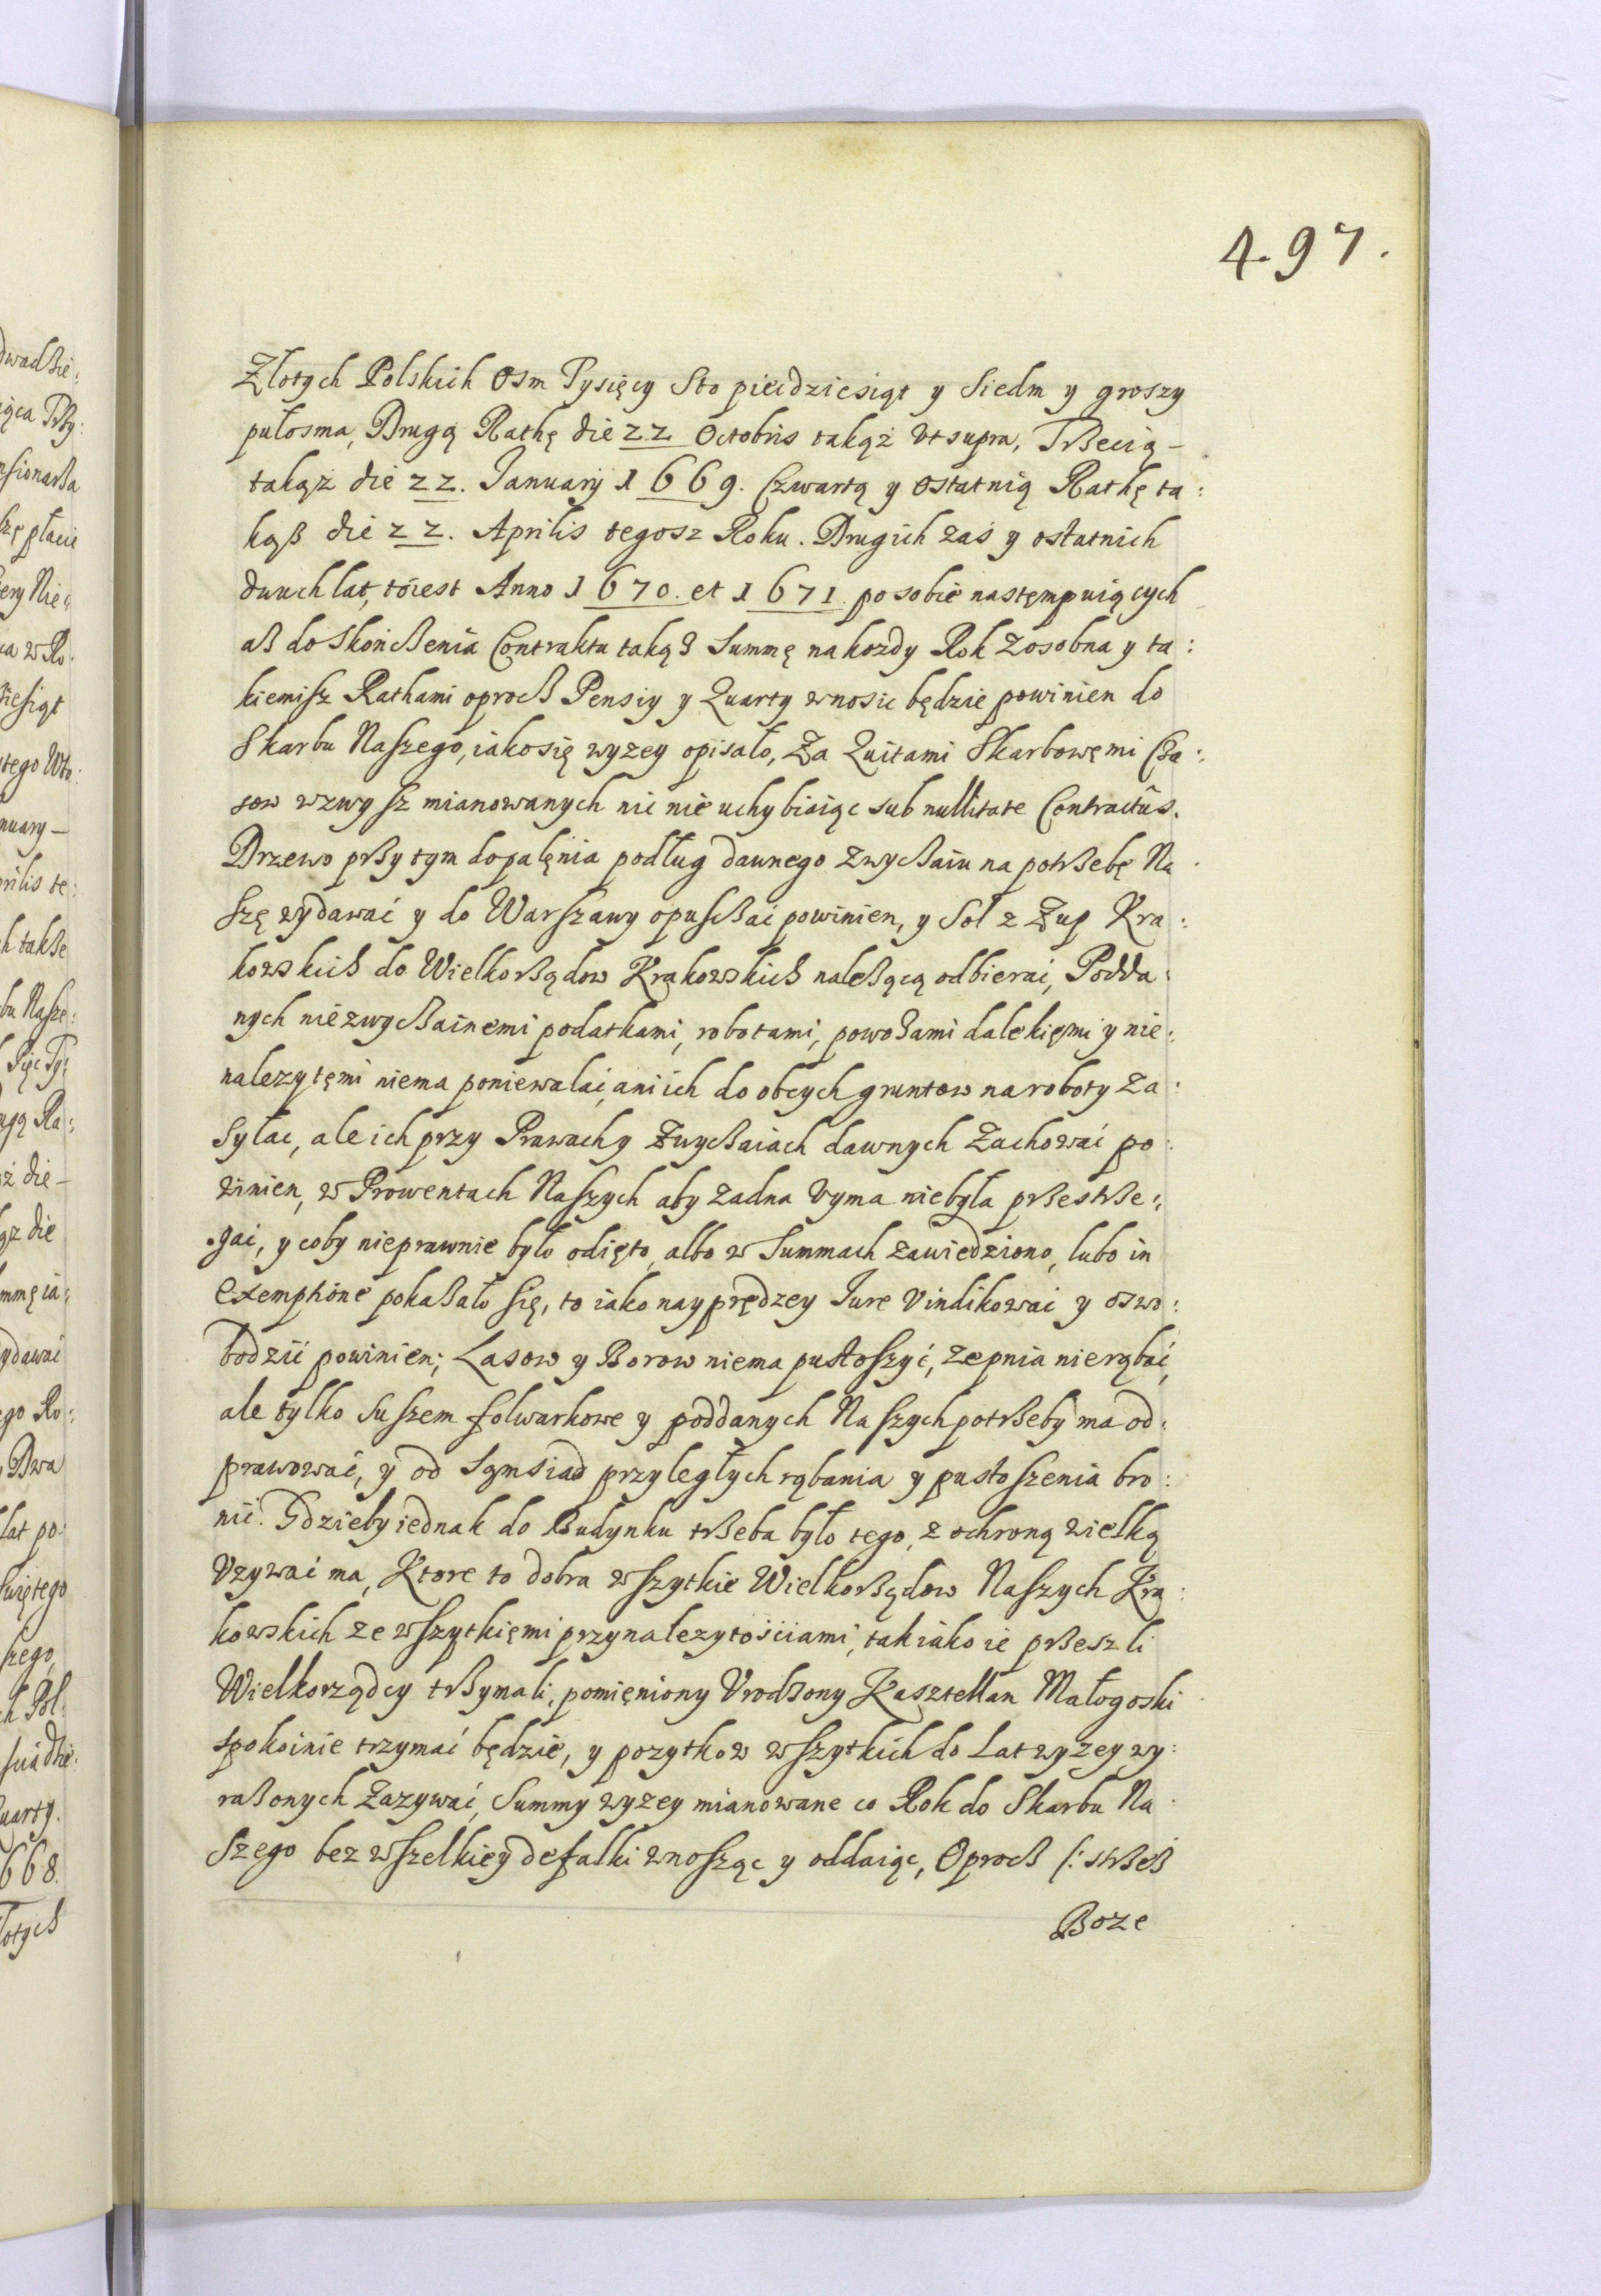 497.
Złotych Polskich Osm Tysięcy Sto piećdziesiąt y Siedm y groszy
pułosma, Drugą Rathę die 22 Octobris takąż Vt supra, Trßecią –
takąż die 22. January 1669. Czwartą y Ostatnią Rathę ta:
kąß die 22. Aprilis tegosz Roku. Drugich zaś y ostatnich
dwuch lat, toiest Anno 1670. et 1671. po sobie następmpuiących
aß do Skończßenia Contraktu taką3 Summę na kożdy Rok zosobna y ta:
kiemisz Rathami oprocß Pensiy y Quarty wnosic będzie powinien do
Skarbu Naszego, iako się wyzey opisało, Za Quitami Skarbowęmi Cßa:
sow wzwysz mianowanych nic nie uchybiaiąc sub nullitate Contractûs.
Drzewo prßytym dopalęnia podług dawnego Zwycßaiu na potrßebę Na
szę wydawać y do Warszawy opuscßać powinien, y Sol z Żup Kra:
kowskich do Wielkorßądow Krakowskich naleßącą odbierać, Podda:
nych niezwycßainemi podatkami, robotami, powoßami dalekięmi y nie:
nalezytęmi niema poniewalać, ani ich do obcych gruntow na roboty Za:
syłac, ale ich przy Prawach y Zwycßaiach dawnych Zachować po:
winien, w Prowentach Naszych aby żadna Vyma niebyła prßestrße:
gać, y coby nieprawnie było odięto, albo w Summach zawiedziono, lubo in
exemptione pokaßało się, to iako nayprędzey Iure Vindikować y oswo:
bodzić powinien; Lasow y Borow niema pustoszyć, Zepnia nierąbać,
ale tylko Suszem folwarkowe y poddanych Naszych potrßeby ma od:
prawować, y od Sąmsiad przyległych rąbania y pustoszenia bro:
nić. Gdzieby iednak do Budynku trßeba było tego, z ochroną wielką
Vzywać ma, Ktore to dobra wszytkie Wielkorßądow Naszych Kra:
kowskich ze wszytkięmi przynalezytościami, tak iako ie prßeszli
Wielkorządcy trßymali, pomięniony Vrodßony Kasztellan Małogoski
spokoinie trzymać będzie, y pozytkow wszytkich do Lat wyzey wy:
raßonych Zazywać, Summy wyzey mianowane co Rok do Skarbu Na:
szego bez wszelkiey defalki wnosząc y oddaiąc, Oprocß /: strßeß
Boze